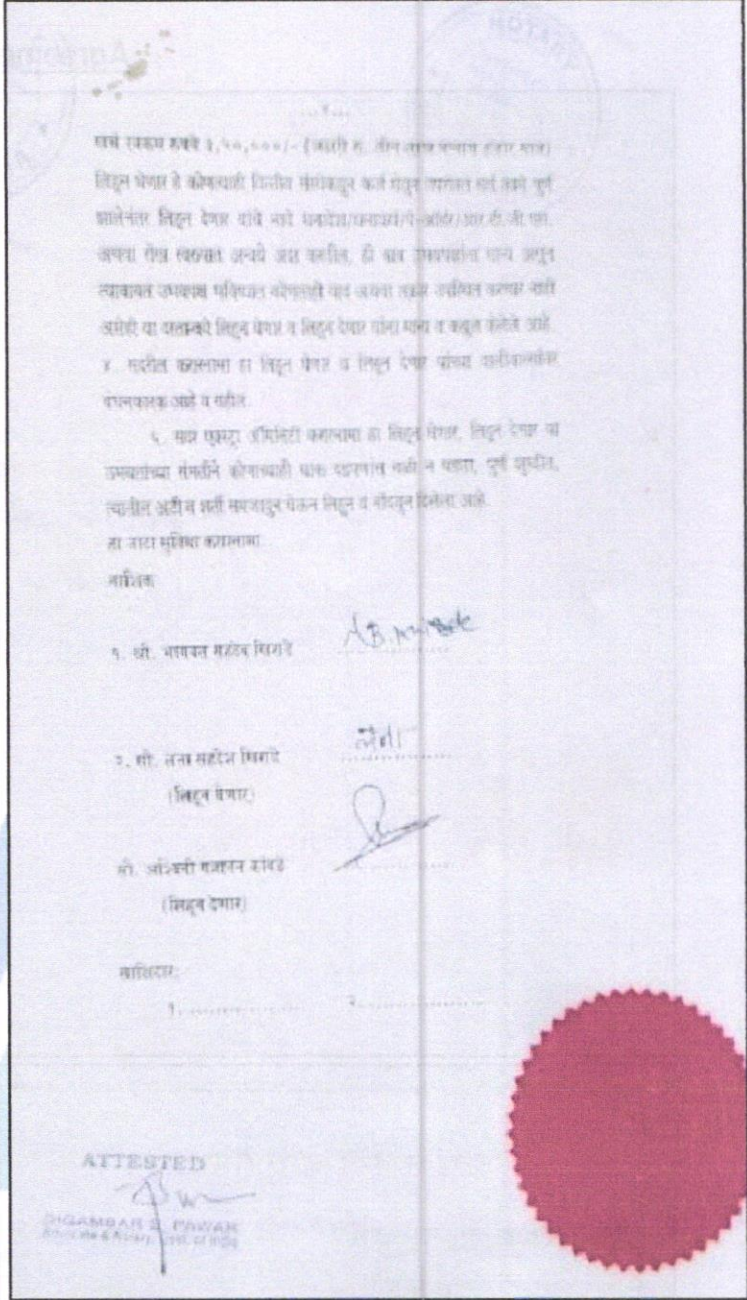 ...४...
खर्च रक्कम रुपये ३,५०,०००/- (अक्षरी रु. तीन लाख पन्नास हजार मात्र)
लिहून घेणार हे कोणत्याही वित्तीय संस्थेकडून कर्ज घेवून उपरोक्त सर्व कामे पुर्ण
झालेनंतर लिहून देणार यांचे नावे धनादेश/धनाकर्ष/पे-ऑर्डर/आर.टी.जी.एस.
अथवा रोख स्वरुपात अन्वये अदा करतील, ही बाब उभयपक्षांना मान्य असून
त्याबाबत उभयपक्ष भविष्यात कोणताही वाद अथवा तक्रार उपस्थित करणार नाही
असेही या दस्तान्वये लिहून घेणार व लिहून देणार यांना मान्य व कबुल केलेले आहे.
४. सदरील करारनामा हा लिहून घेणार व लिहून देणार यांच्या वालीवारसांवर
बंधनकारक आहे व राहील.
५. सदर एक्स्ट्रा ॲमिनिटी करारनामा हा लिहून घेणार, लिहून देणार या
उभयतांच्या संमतीने कोणाच्याही धाक दडपणास बळी न पडता, पुर्ण शुध्दीत,
त्यातील अटी व शर्ती समजावुन घेऊन लिहून व नोंदवून दिलेला आहे.
हा जादा सुविधा करारनामा.
नाशिक
१. श्री. भागवत सहदेव
२. सौ. लता सहदेव
लता
(लिहून घेणार)
सौ. अश्विनी गजानन कावडे
(लिहून देणार)
साक्षिदार:
१................ २................
ATTESTED
DIGAMBAR S. PAWAR
Advocate & Notary, Govt. of India